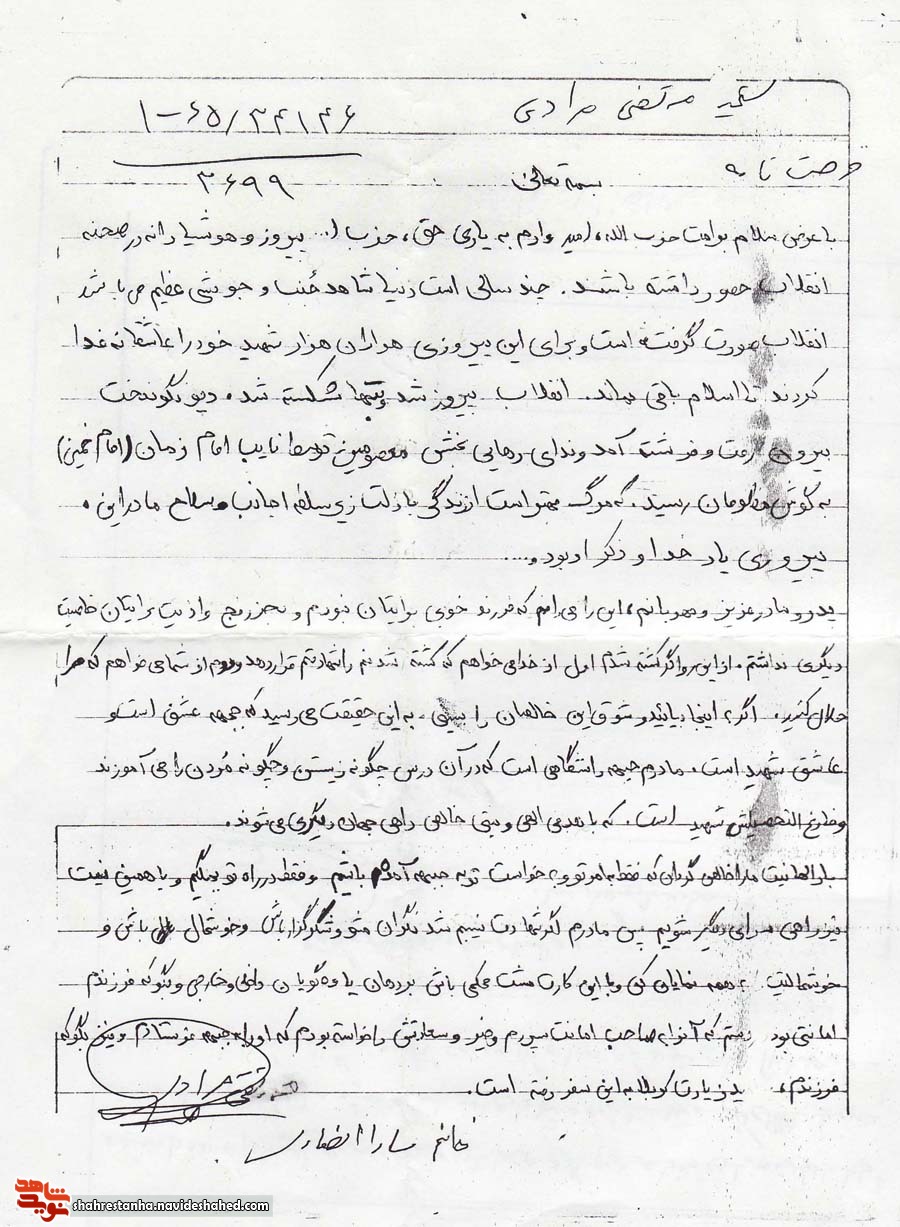 شهید مرتضی مرادی
۱-۶۵/۳۴۱۴۶
۳۶۹۹
وصیت نامه
بسمه تعالی
با عرض سلام بر امت حزب الله، امیدوارم به یاری حق، حزب ا... پیروز و هوشیارانه در صحنه
انقلاب حضور داشته باشند. چند سالی است دنیا شاهد جنب و جوشی عظیم می باشد
انقلاب صورت گرفته است و برای این پیروزی هزاران هزار شهید خود را عاشقانه فدا
کردند تا اسلام باقی بماند. انقلاب پیروز شد بتها شکسته شد. دیو نگونبخت
بیرون رفت و فرشته آمد و ندای رهایی بخش معصومین توسط نایب امام زمان (امام خمینی)
به گوش مظلومان رسید. که مرگ بهتر است از زندگی با ذلت زیر سلطه اجانب و سلاح ما در این
پیروزی یاد خدا و ذکر او بود و....
پدر و مادر عزیز و مهربانم، این را می دانم که فرزند خوبی برایتان نبودم و بجز رنج و اذیت برایتان خاصیت
دیگری نداشتم. از این رو اگر کشته شدم اول از خدا می خواهم که کشته شدنم را شهادتم قرار دهد و دوم از شما می خواهم که مرا
حلال کنید. اگر اینجا بیائید و شوق این خالصان را ببینی، به این حقیقت می رسید که جبهه عشق است و
عاشق شهید است. مادرم جبهه دانشگاهی است که در آن درس چگونه زیستن و چگونه مُردن را می آموزند
و فارغ التحصیلش شهید است. که با هدفی الهی و نیتی خالص راهی جهان دیگری می شوند.
بارالها نیت ما را خالص گردان که فقط به امر تو و به خواست تو به جبهه آمده باشیم و فقط در راه تو بجنگیم و با همین نیت
نیز راهی سرای دیگر شویم پس مادرم اگر شهادت نصیبم شد نگران مشو و شکرگزار باش و خوشحال باش و
خوشحالیت به همه نمایان کن و با این کارت مشت محکمی باش بر دهان یاوه گویان داخلی و خارجی و بگو که فرزندم
امانتی بود که آنرا به صاحب امانت سپردم و خیر و سعادتش را خواسته بودم که او را به جبهه فرستادم و نیز بگو که
فرزندم، به زیارت کربلا به این سفر رفته است.
مرتضی مرادی
خانم سارا انصاری
شاهد
نوید
shahrestanha.navideshahed.com